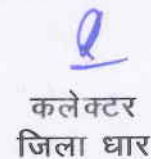 कलेक्टर
जिला धार